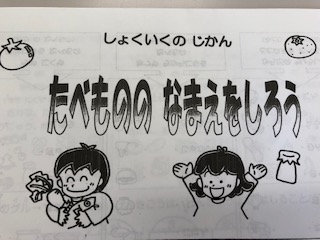 しょくいくの じかん
たべものの なまえをしろう